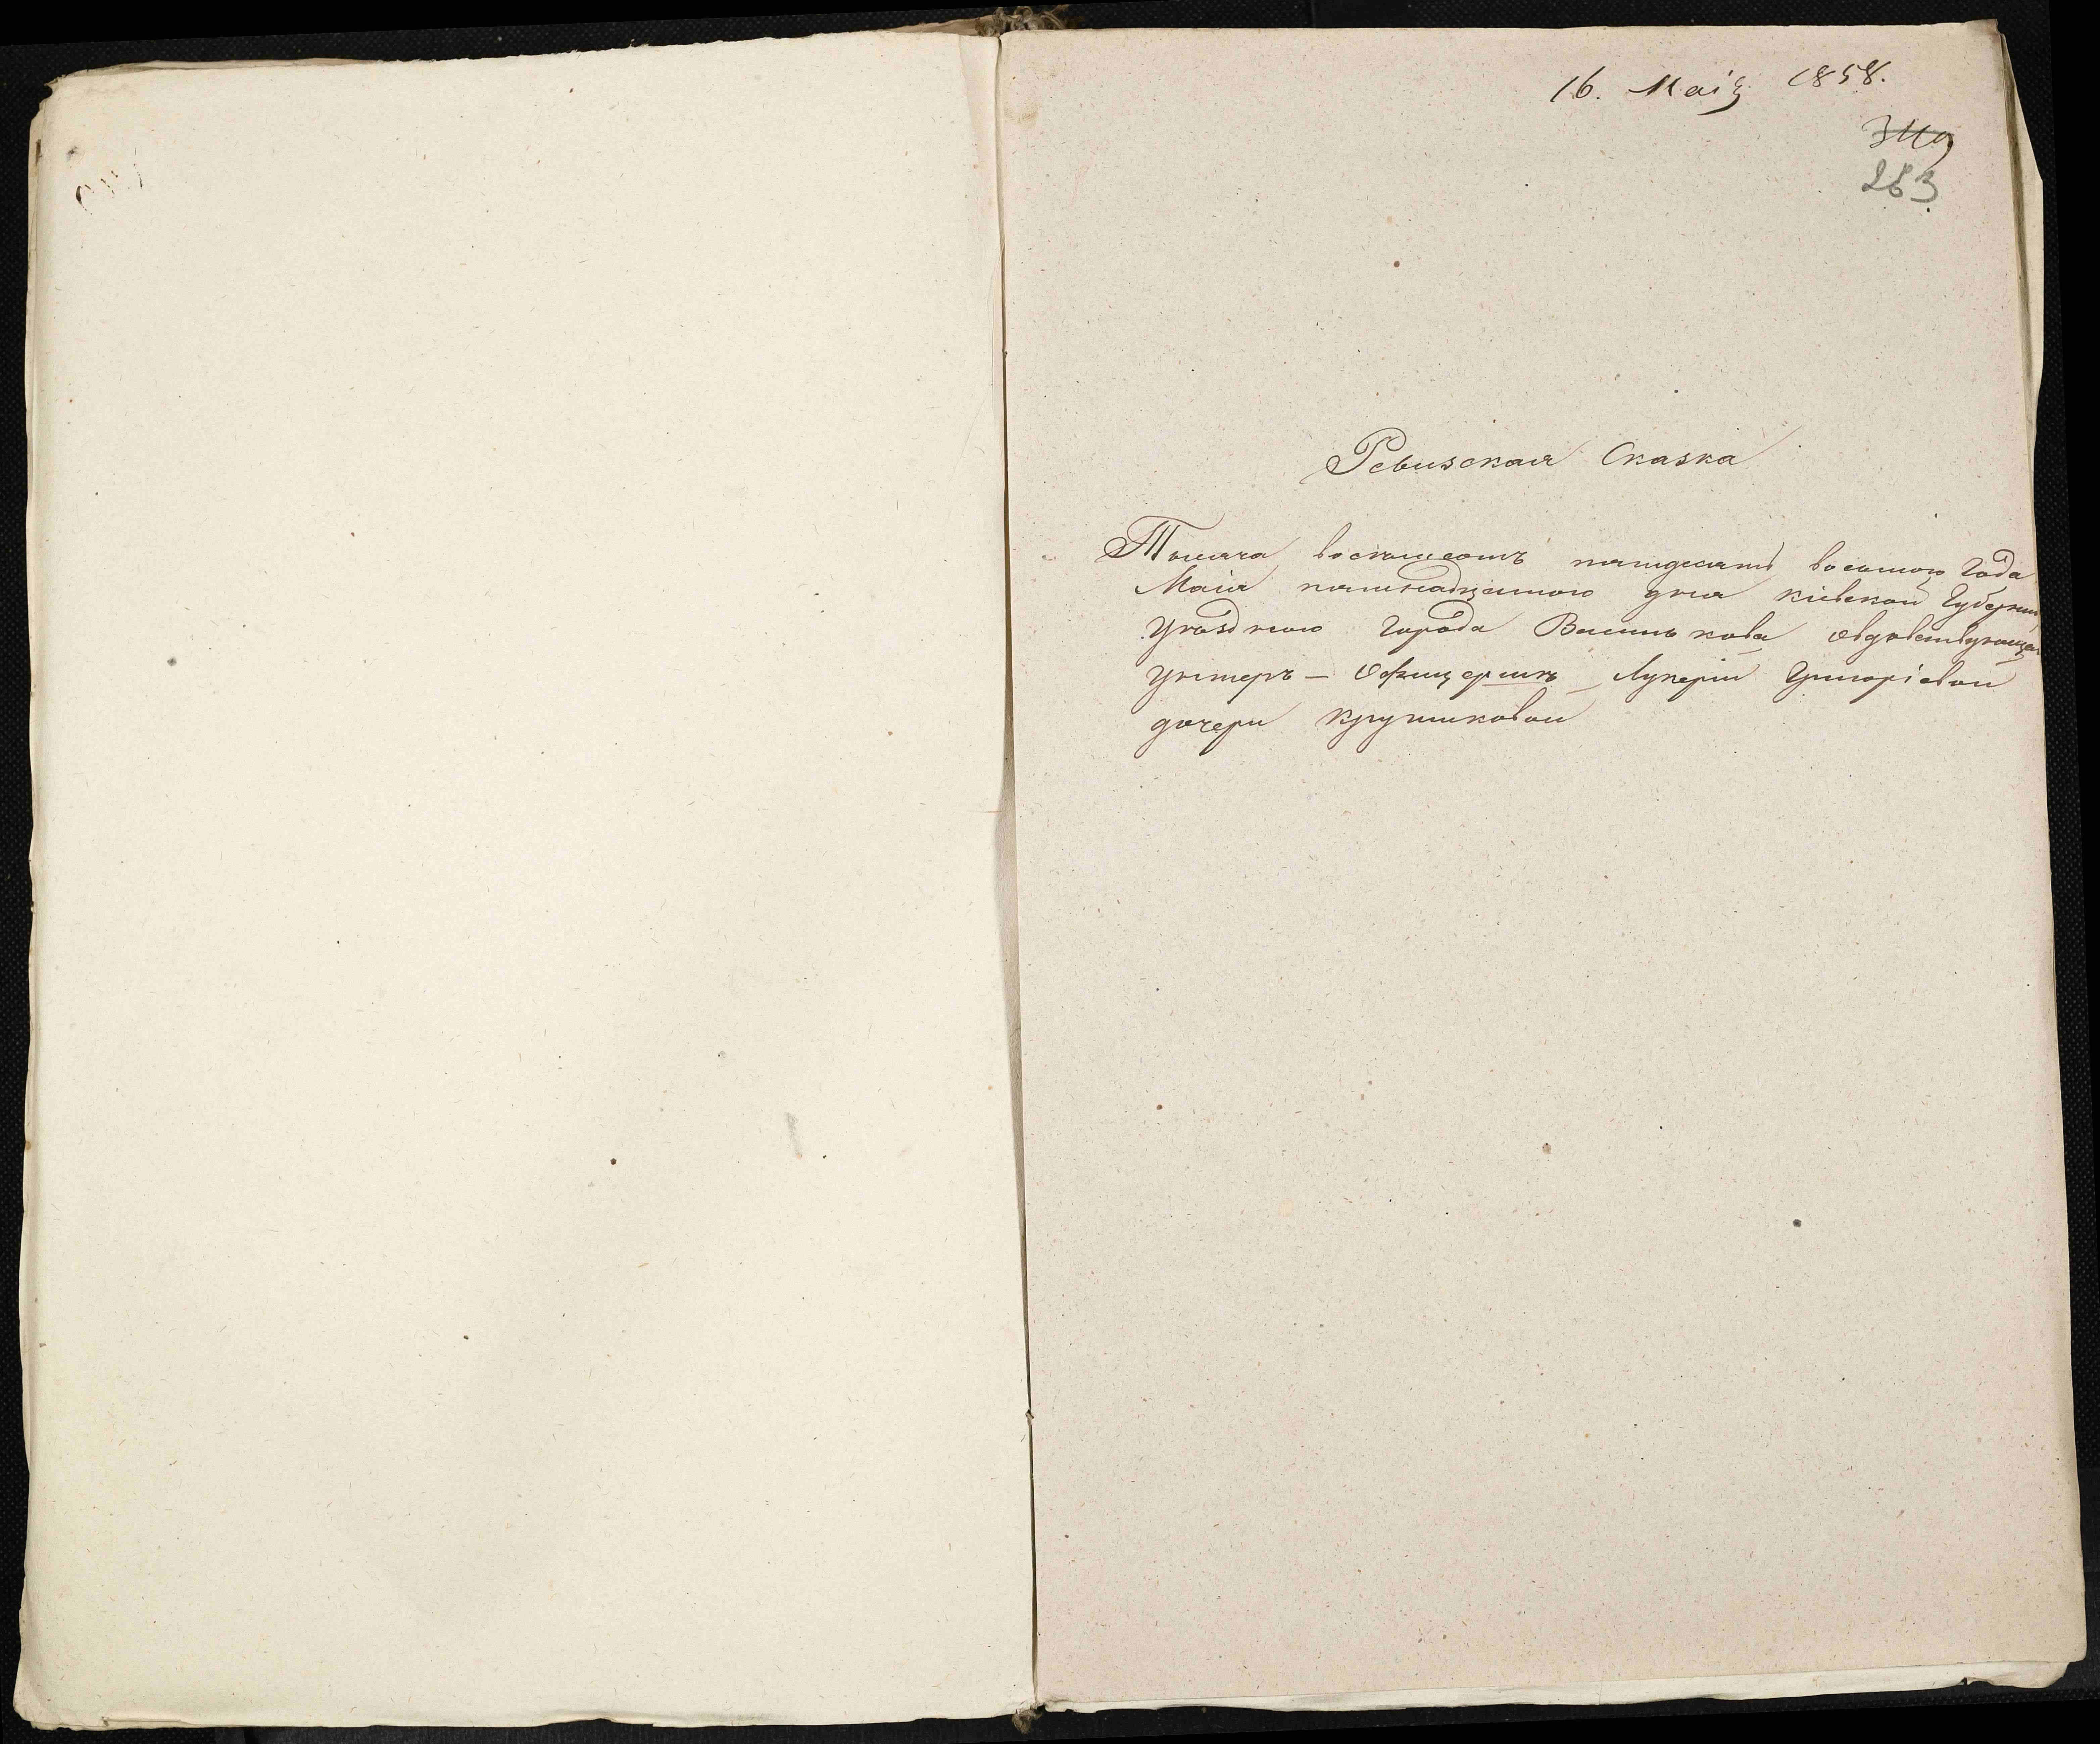 16. Маія 1858.
349
263
Ревизская Сказка
Тысяча восемьсотъ пятдесятъ восьмого Года
Маія пятнадцатого дня Кіевской Губерніи
Уѣзднаго Города Василькова овдовствующей
Унтеръ – Офицершѣ Лукеріи Григоріевой
дочери Крупниковой